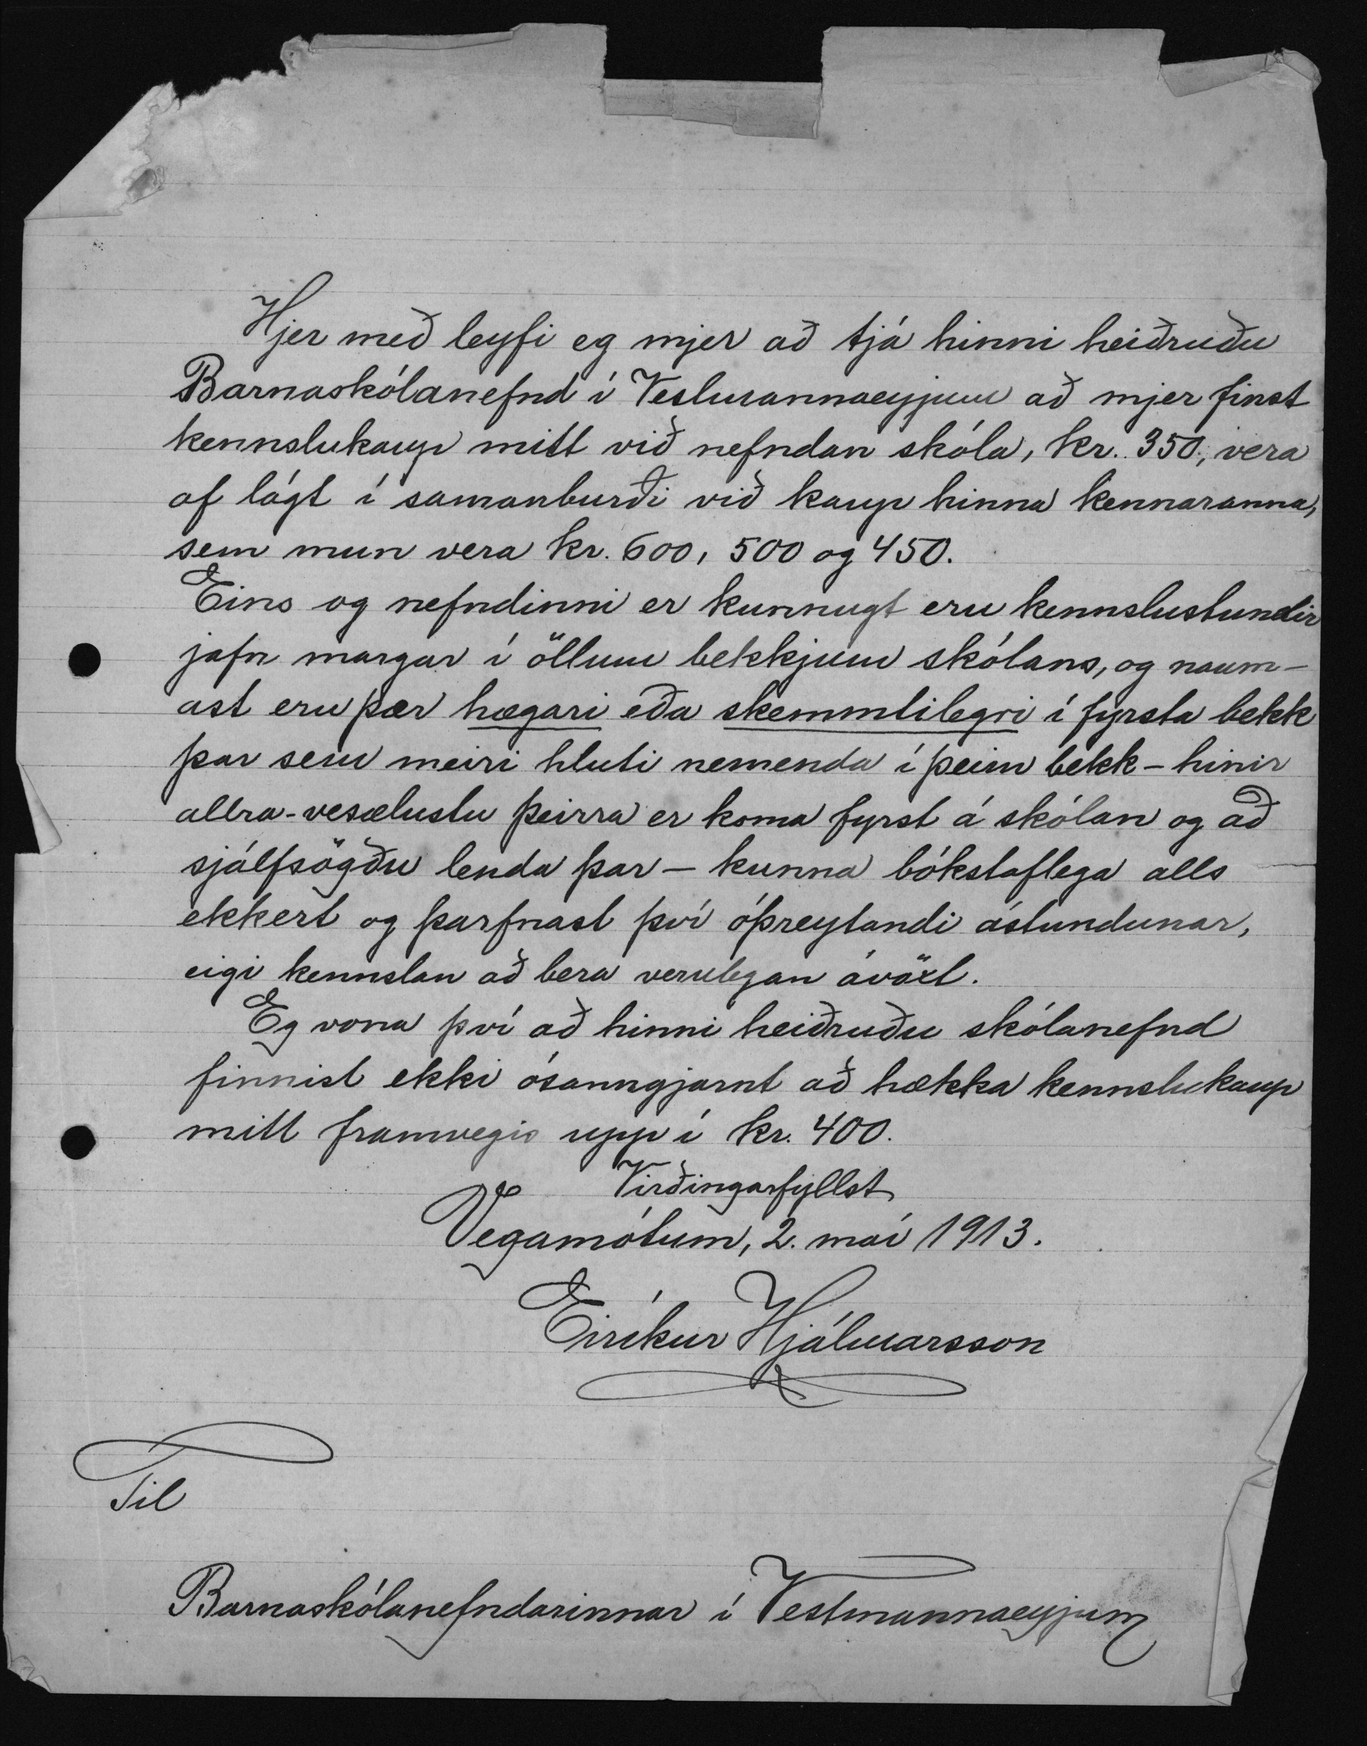 Hjer með leyfi eg mjer að tjá hinni heiðruðu
Barnaskólanefnd í Vestmannaeyjum að mjer finst
kennslukaup mitt við nefndan skóla, kr. 350, vera
of lágt í samanburði við kaup hinna kennaranna,
sem mun vera kr. 600, 500 og 450.
Eins og nefndinni er kunnugt eru kennslustundir
jafn margar í öllum bekkjum skólans, og naum-
ast eru þær hægari eða skemmtilegri í fyrsta bekk
þar sem meiri hluti nemenda í þeim bekk - hinir
allra-vesælustu þeirra er koma fyrst á skólan og að
sjálfsögðu lenda þar - kunna bókstaflega alls
ekkert og þarfnast því óþreytandi ástundunar,
eigi kennslan að bera verulegan ávöxt.
Eg vona því að hinni heiðruðu skólanefnd
finnist ekki ósanngjarnt að hækka kennslukaup
mitt framvegis upp í kr. 400.
Virðingarfyllst
Vegamótum, 2. maí 1913.
Eiríkur Hjálmarsson
Til
Barnaskólanefndarinnar í Vestmannaeyjum